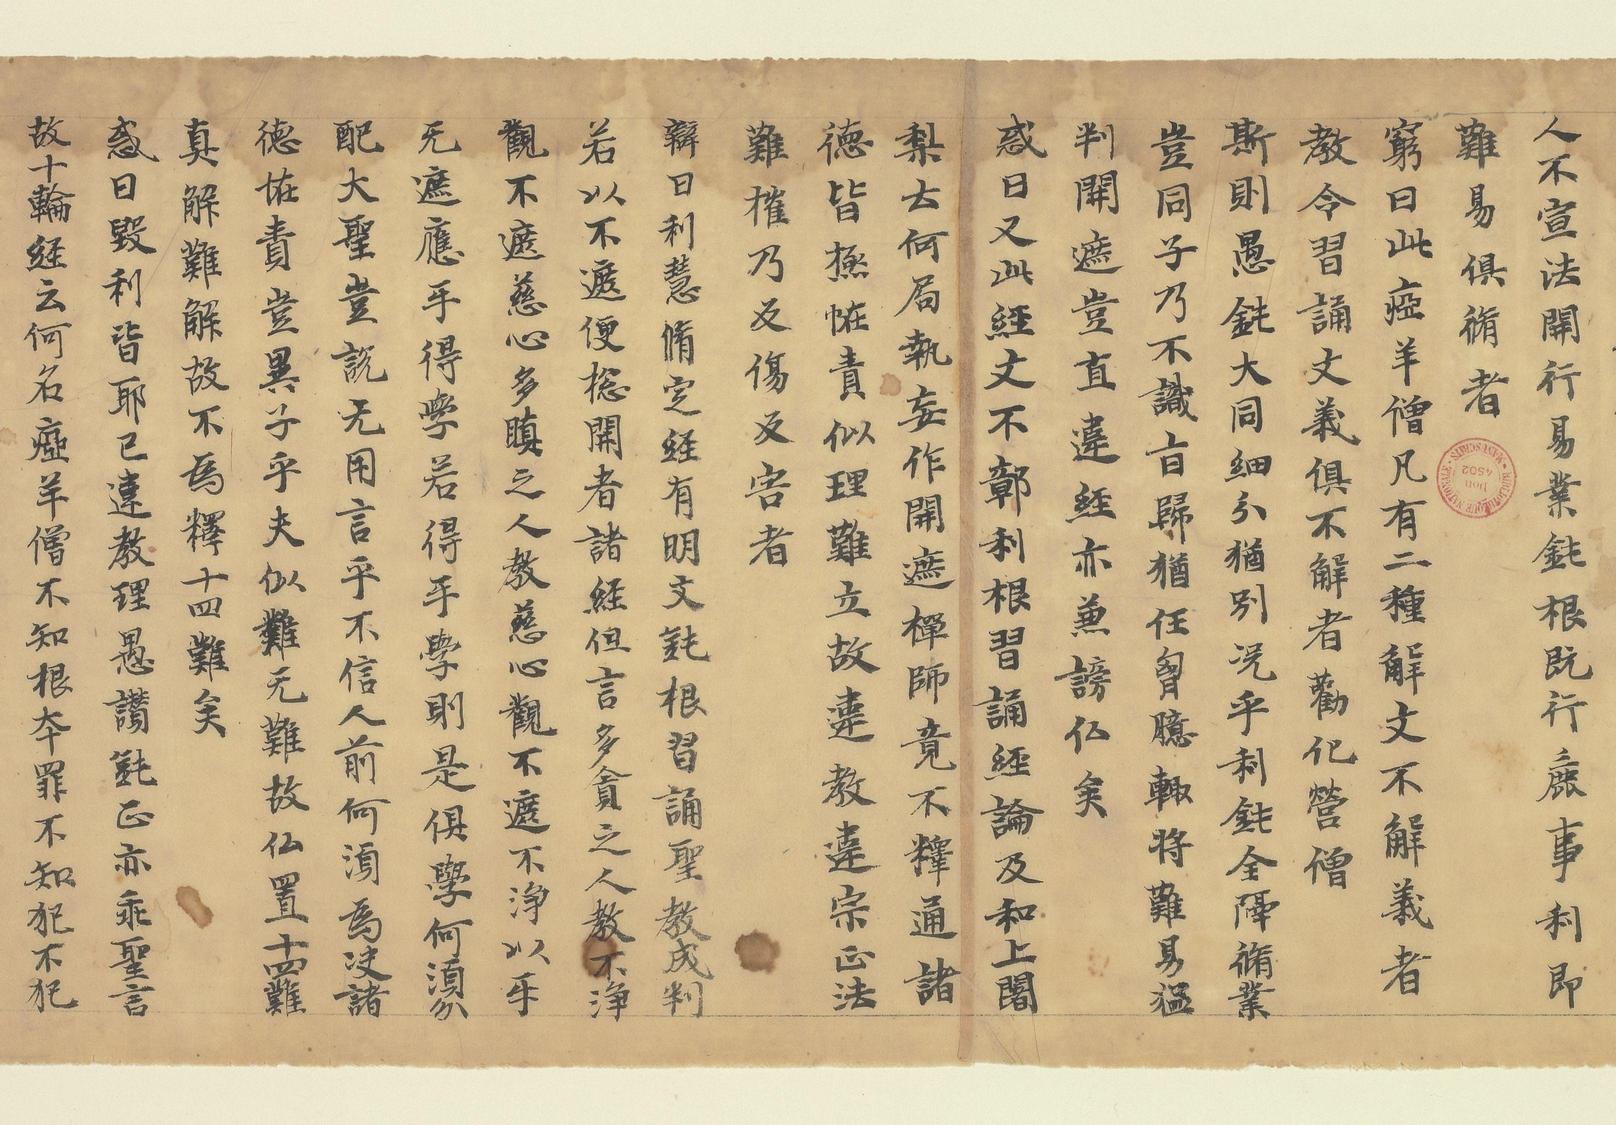 人不宣法開行易業鈍根既行麁事利即
難易俱脩者
窮曰此瘂羊僧凡有二種解文不解義者
教令習誦文義俱不解者勸化營僧
斯則愚鈍大同細分猶別況乎利鈍全隔脩業
豈同子乃不識旨歸猶任胷臆輙將難易濫
判開遮豈直違經亦兼謗仏矣
惑曰又此經文不彰利根習誦經論及和上闍
梨云何局執妄作開遮禪師竟不釋通諸
德皆懷恠責似理難立故違教違宗正法
難摧乃反傷反害者
辯曰利慧脩定經有明文鈍根習誦聖教成判
若以不遮便揔開者諸經但言多貪之人教不淨
觀不遮慈心多瞋之人教慈心觀不遮不淨以乎
无遮應乎得學若得乎學則是俱學何須分
配大聖豈說无用言乎不信人前何須為決諸
德恠責豈異子乎夫似難无難故仏置十四難
真解難解故不為釋十四難矣
惑曰毀利皆耶已違教理愚讚鈍正亦乖聖言
故十輪經云何名瘂羊僧不知根本罪不知犯不犯
BIBLIOTHÈQUE NATIONALE MANUSCRITS
Don
4502